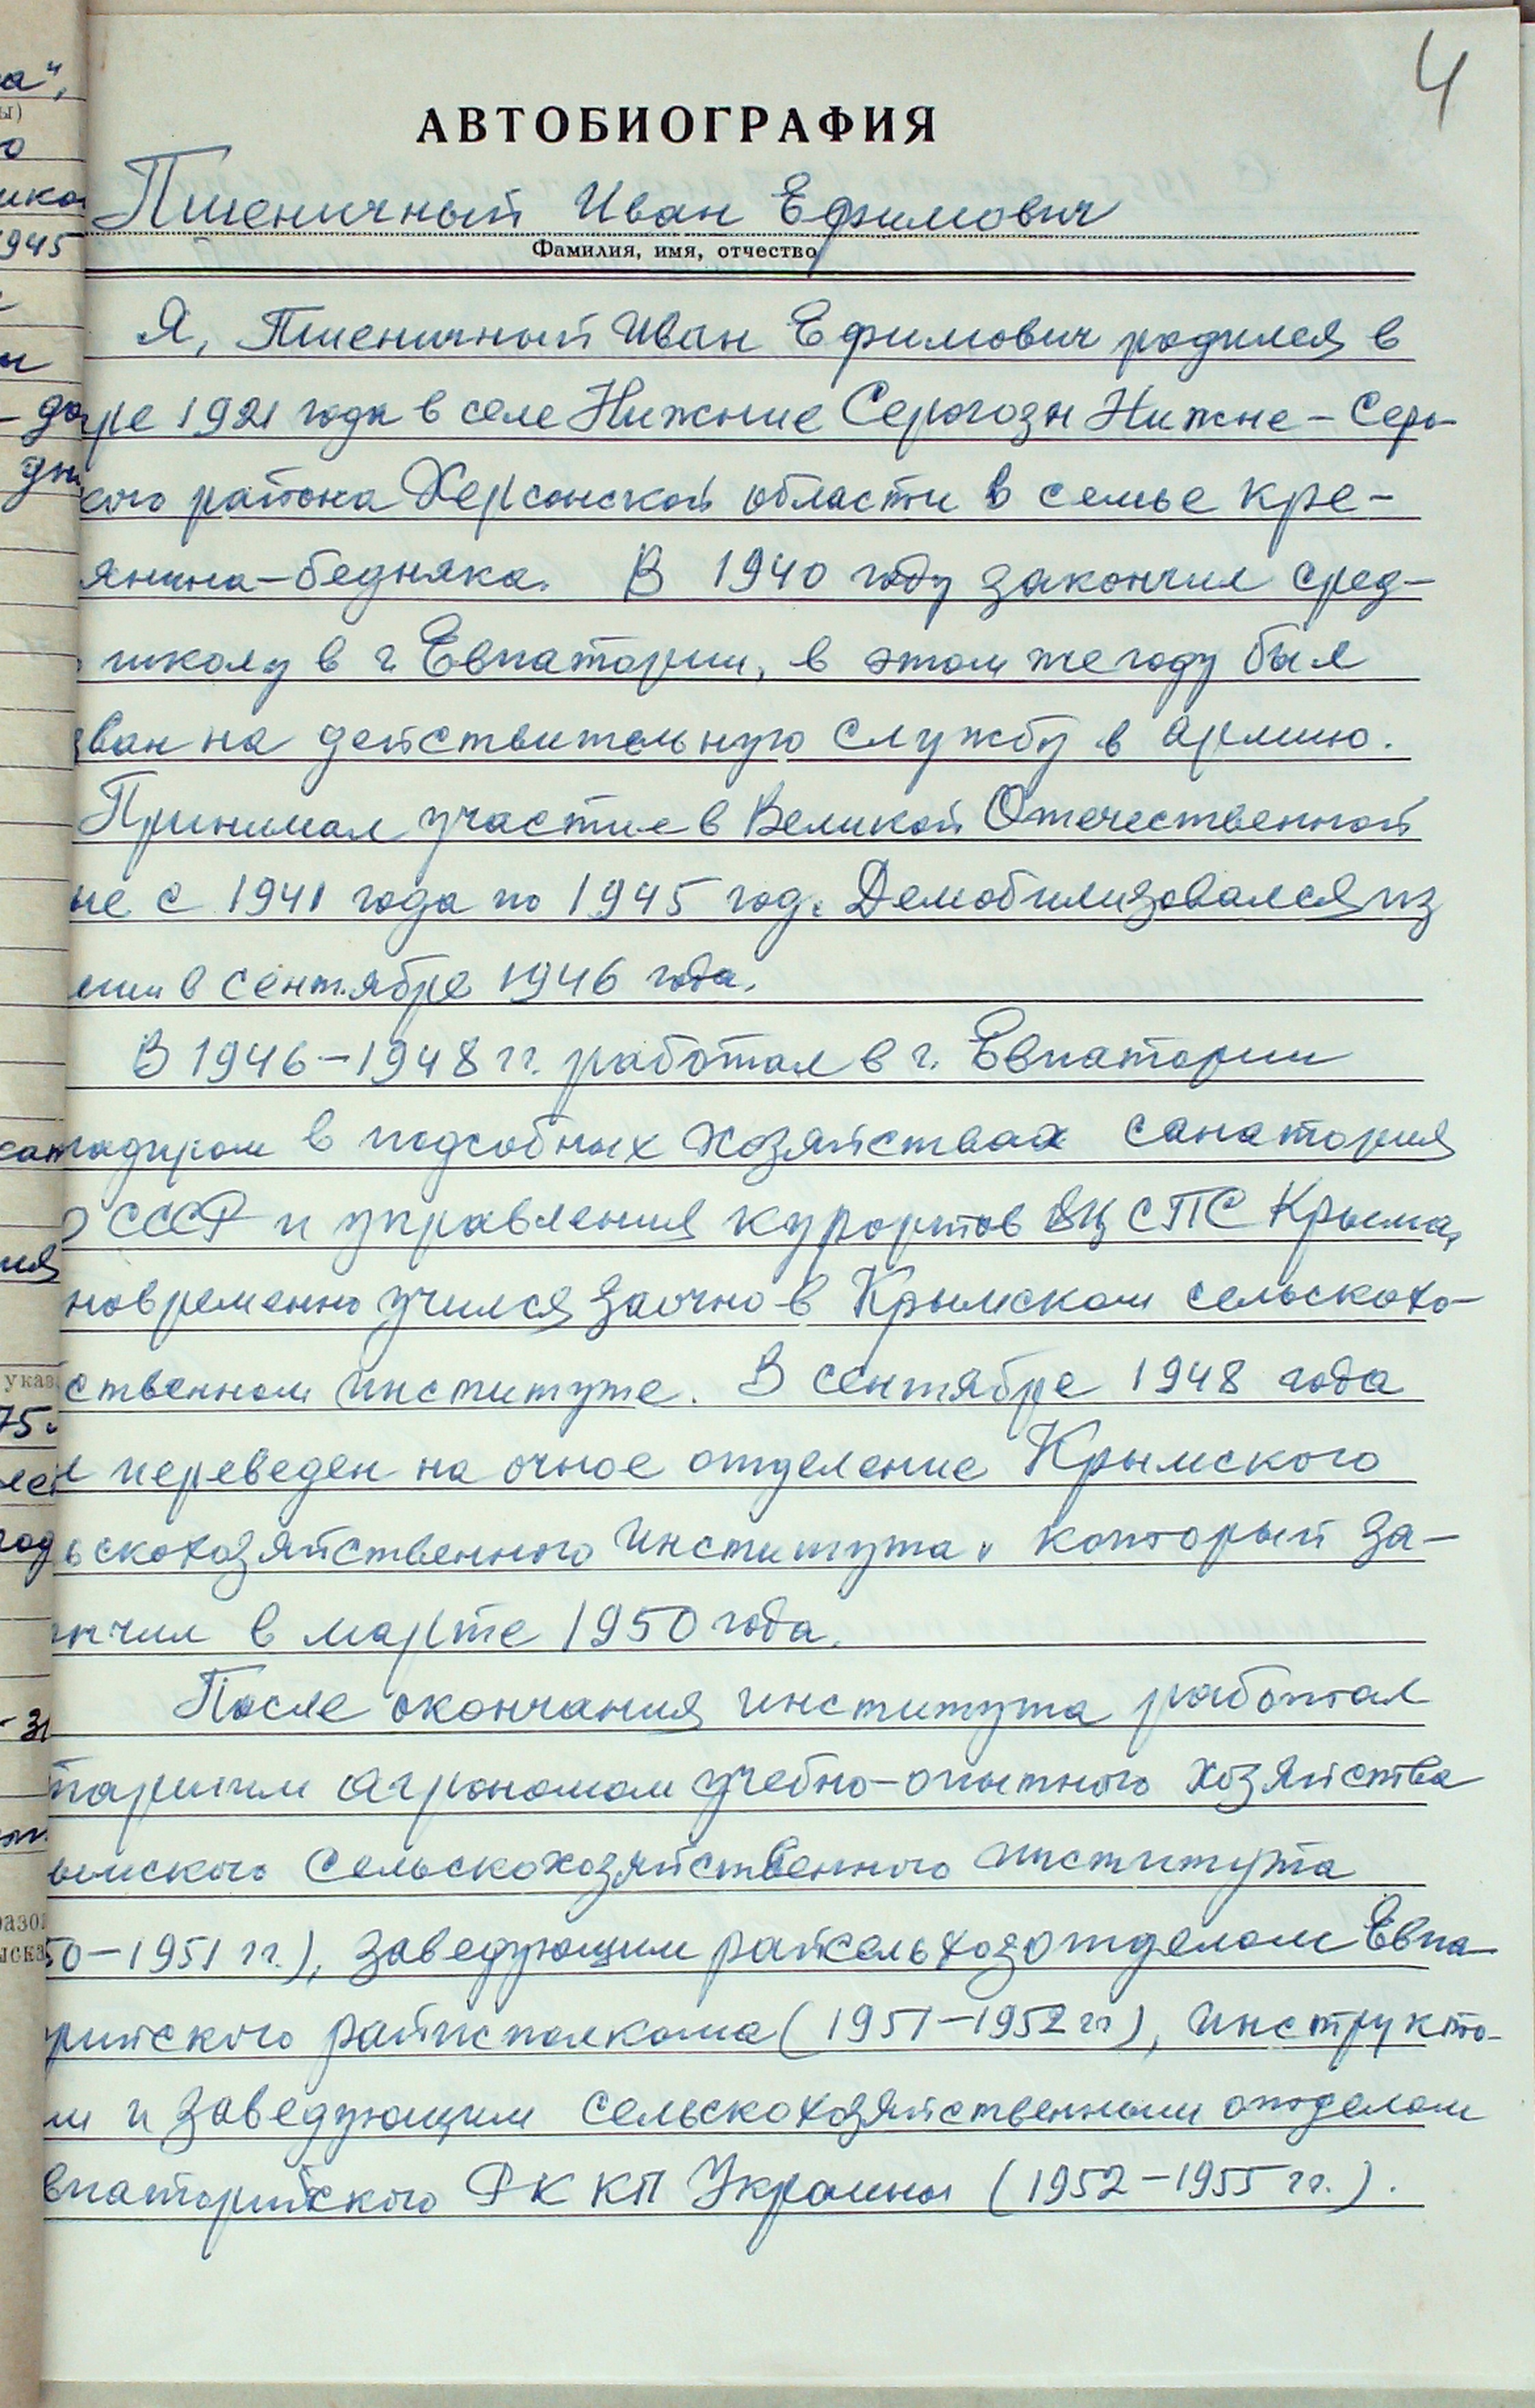 4
АВТОБИОГРАФИЯ
Пшеничный Иван Ефимович
Фамилия, имя, отчество
Я, Пшеничный Иван Ефимович родился в
ре 1921 года в селе Нижние Серогозы Нижне-Серо-
кого района Херсонской области в семье кре-
янина-бедняка. В 1940 году закончил сред-
школу в г. Евпатории, в этом же году был
зван на действительную службу в армию.
Принимал участие в Великой Отечественной
не с 1941 года по 1945 год. Демобилизовался из
мии в сентябре 1946 года.
В 1946-1948 гг. работал в г. Евпатории
гадиром в подсобных хозяйствах санатория
О СССР и управления курортов ВЦСПС Крыма,
новременно учился заочно в Крымском сельскохо-
ственном институте. В сентябре 1948 года
л переведен на очное отделение Крымского
ьскохозяйственного института, который за-
нчил в марте 1950 года.
После окончания института работал
таршим агрономом учебно-опытного хозяйства
ымского сельскохозяйственного института
50-1951 гг.), заведующим райсельхозотделом Евпа-
рийского райисполкома (1951-1952 гг), инструкто-
м и заведующим сельскохозяйственным отделом
впаторийского РК КП Украины (1952-1955 гг.).